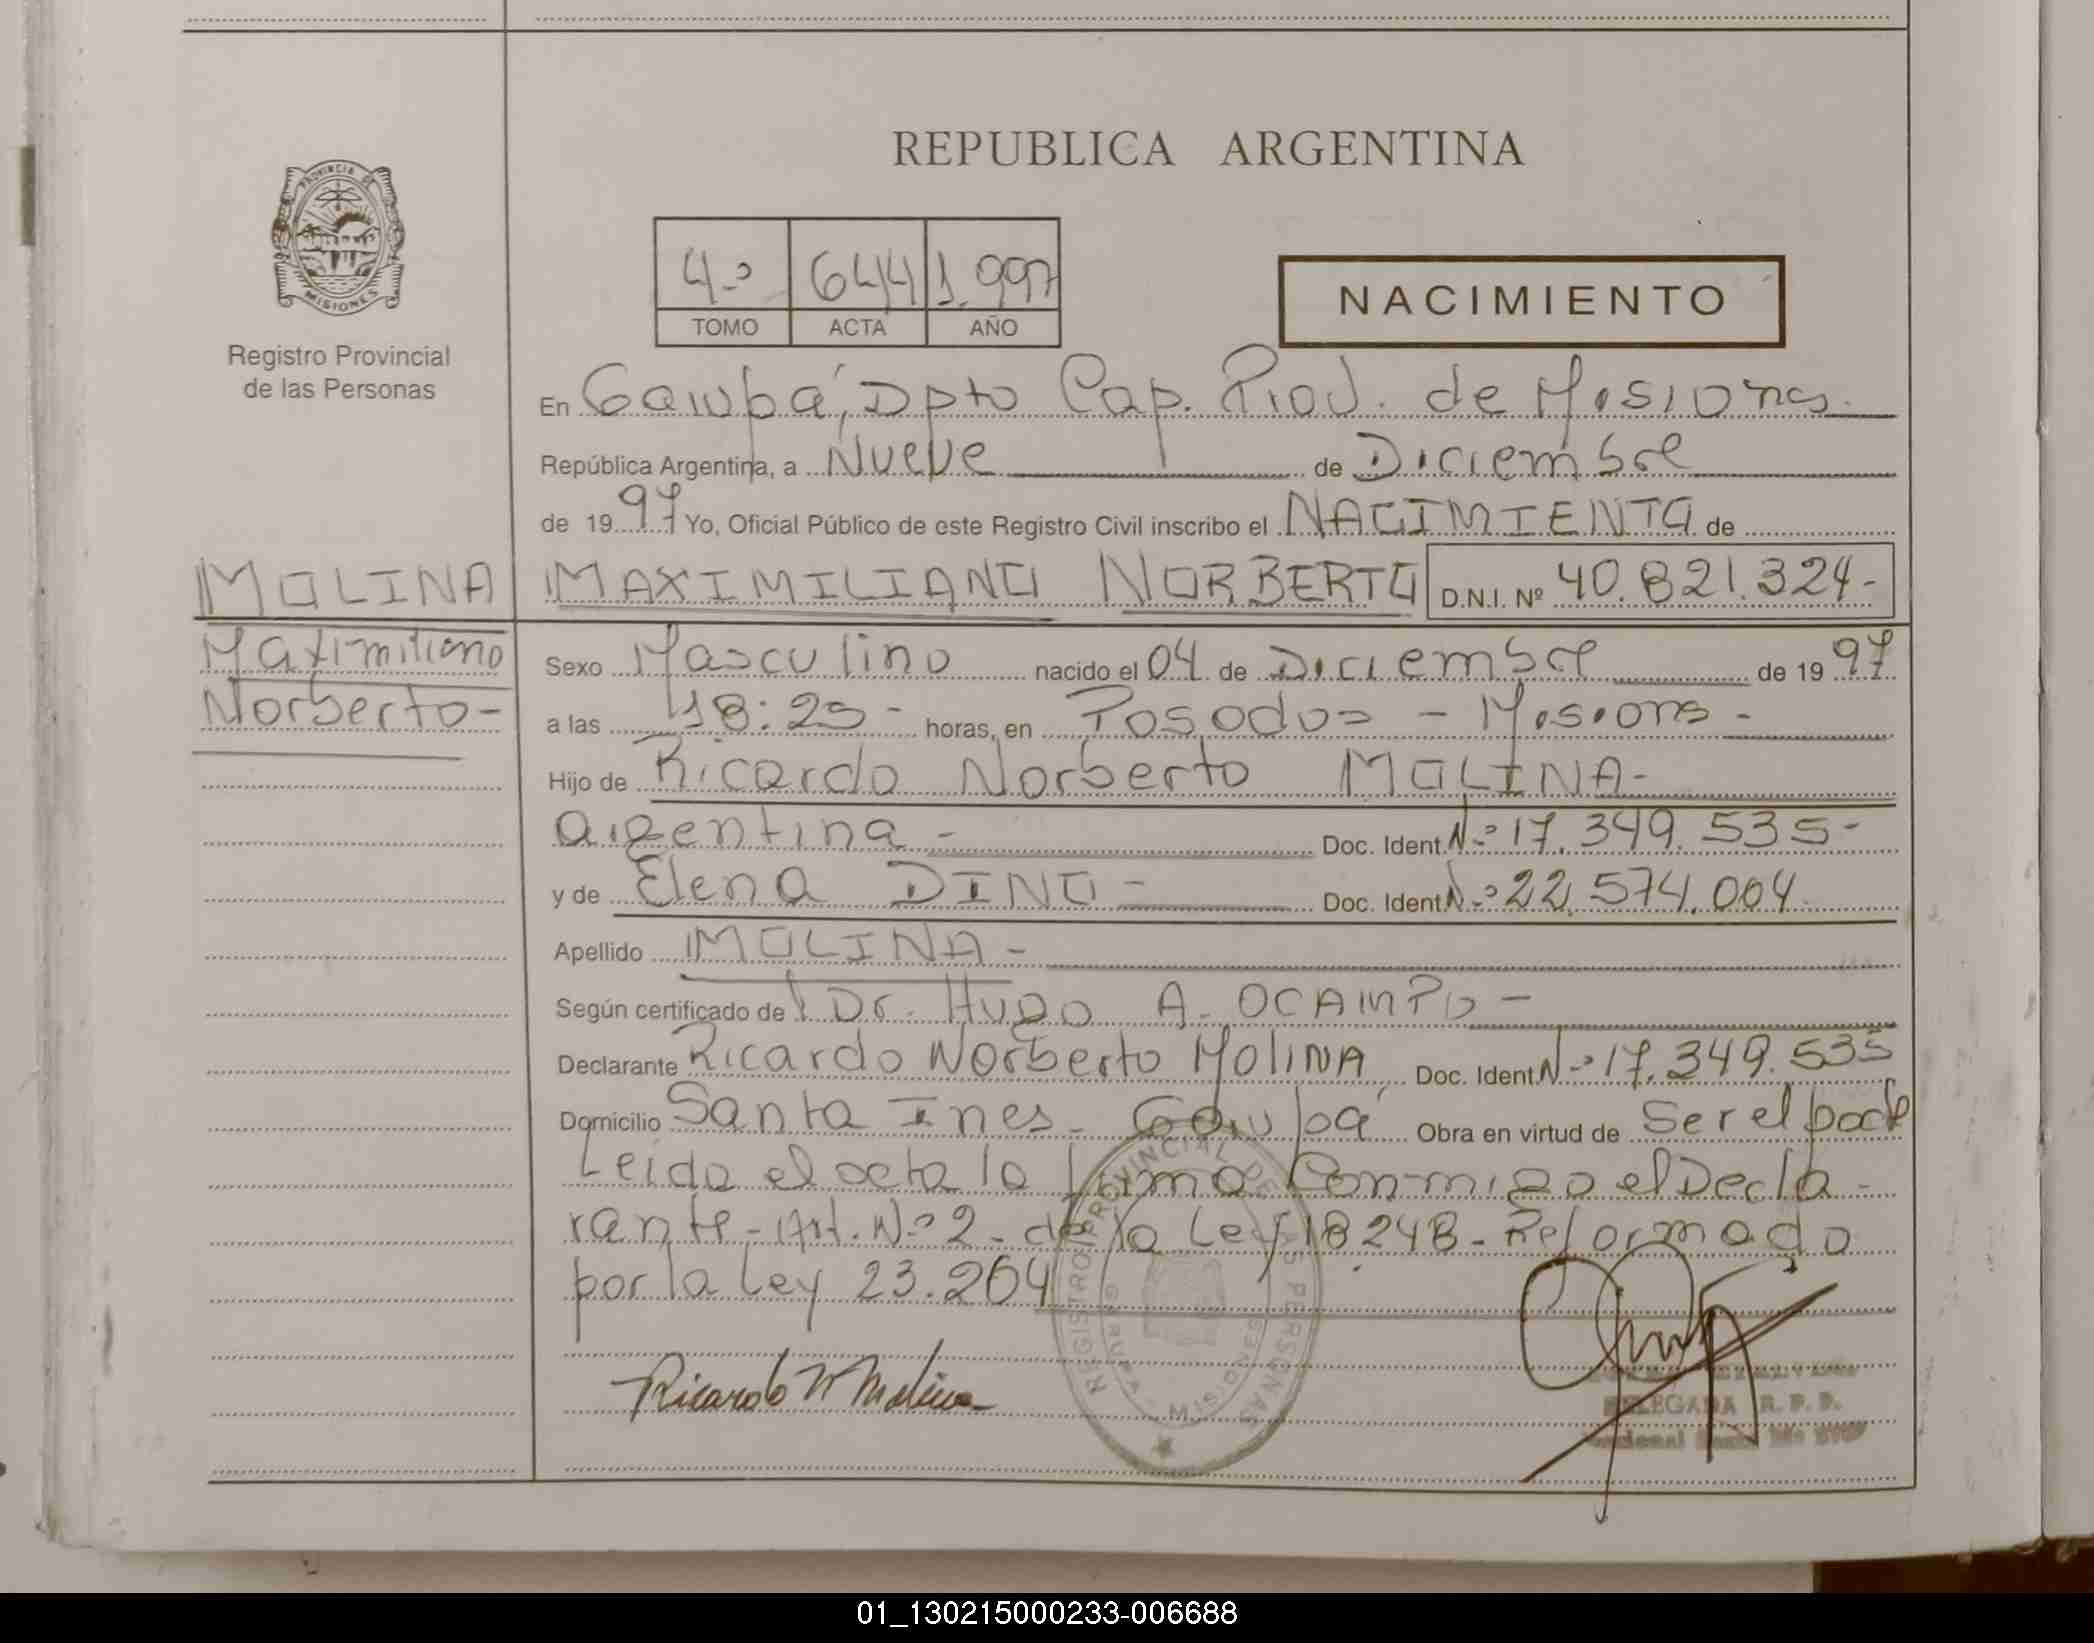 REPUBLICA ARGENTINA
PROVINCIA DE
MISIONES
Registro Provincial
de las Personas
4º 644 1.997
TOMO ACTA AÑO
NACIMIENTO
En Garupá, Dpto Cap. Prov. de Misiones.
República Argentina, a Nueve de Diciembre
de 1997 Yo, Oficial Público de este Registro Civil inscribo el NACIMIENTO de
MOLINA MAXIMILIANO NORBERTO D.N.I. Nº 40.821.324-
Maximiliano
Norberto-
Sexo Masculino nacido el 04 de Diciembre de 1997
a las 18:25- horas, en Posadas - Misiones -
Hijo de Ricardo Norberto MOLINA-
argentina - Doc. Ident. Nº 17.349.535-
y de Elena DINO - Doc. Ident. Nº 22.574.004.
Apellido MOLINA -
Según certificado de Dr. HUGO A. OCAMPO -
Declarante Ricardo Norberto MOLINA Doc. Ident. Nº 17.349.535
Domicilio Santa Ines - Garupá Obra en virtud de Ser el padre
Leida el acta la firma Conmigo el Decla-
rante - Art. Nº 2 - de la Ley 18248 - Reformado
por la Ley 23.264
REGISTRO PROVINCIAL DE LAS PERSONAS
GARUPA - MISIONES
Ricardo N Molina
DELEGADA R. P. P.
01_130215000233-006688